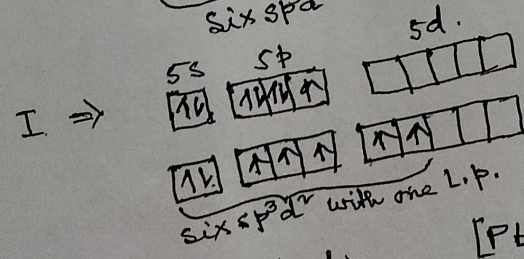 six spd
5s 5p 5d.
I ⇒ ↑↓ ↑↓ ↑↓ ↑
↑↓ ↑ ↑ ↑ ↑ ↑
six sp³d² with one L.p.
[Pt